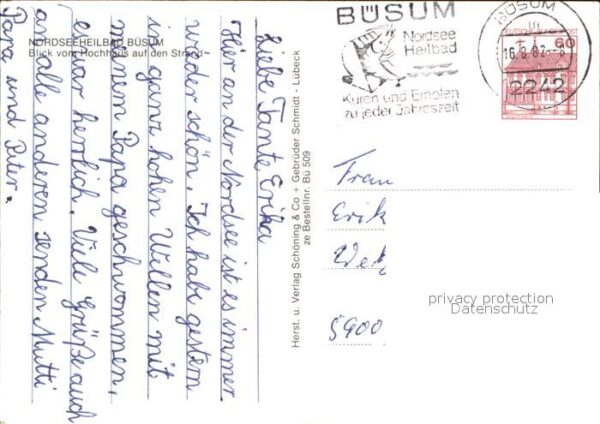 NORDSEEHEILBAD BÜSUM
Blick vom Hochhaus auf den Strand
Liebe Tante Erika,
Hier an der Nordsee ist es immer
wieder schön. Ich habe gestern
in ganz hohen Wellen mit
meinem Papa geschwommen,
es war herrlich. Viele Grüße auch
an alle anderen senden Mutti
Papa und Peter.
Herst. u. Verlag Schöning & Co + Gebrüder Schmidt - Lübeck
ze Bestellnr. Bü 509
BÜSUM
Nordsee
Heilbad
Kuren und Erholen
zu jeder Jahreszeit
BÜSUM
2242
60
Frau
Erik
5900
privacy protection
Datenschutz